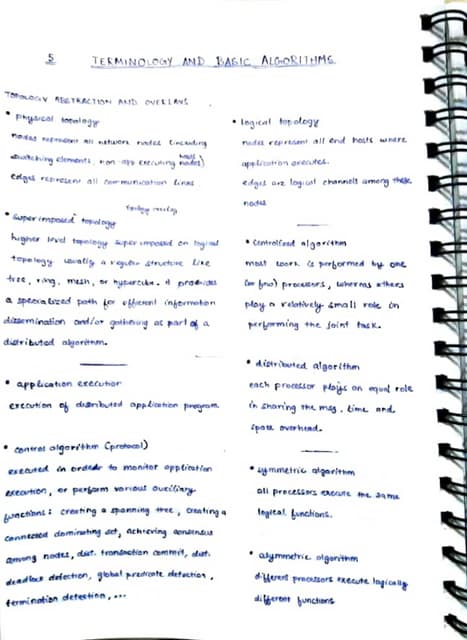 5 TERMINOLOGY AND BASIC ALGORITHMS
TOPOLOGY ABSTRACTION AND OVERLAYS
• physical topology
nodes represent all network nodes (including
switching elements, non-app executing hosts nodes)
edges represent all communication links
• superimposed topology
topology overlay
higher level topology superimposed on logical
topology usually a regular structure like
tree, ring, mesh, or hypercube. it produces
a specialized path for efficient information
dissemination and/or gathering as part of a
distributed algorithm.
• application execution
execution of distributed application program
• control algorithm (protocol)
executed in order to monitor application
execution, or perform various auxiliary
functions: creating a spanning tree, creating a
connected dominating set, achieving consensus
among nodes, dist. transaction commit, dist.
deadlock detection, global predicate detection,
termination detection, ...
• logical topology
nodes represent all end hosts where
application executes.
edges are logical channels among these
nodes
• centralized algorithm
most work is performed by one
(or few) processors, whereas others
play a relatively small role in
performing the joint task.
• distributed algorithm
each processor plays an equal role
in sharing the msg, time and
space overhead.
• symmetric algorithm
all processors execute the same
logical functions.
• asymmetric algorithm
different processors execute logically
different functions